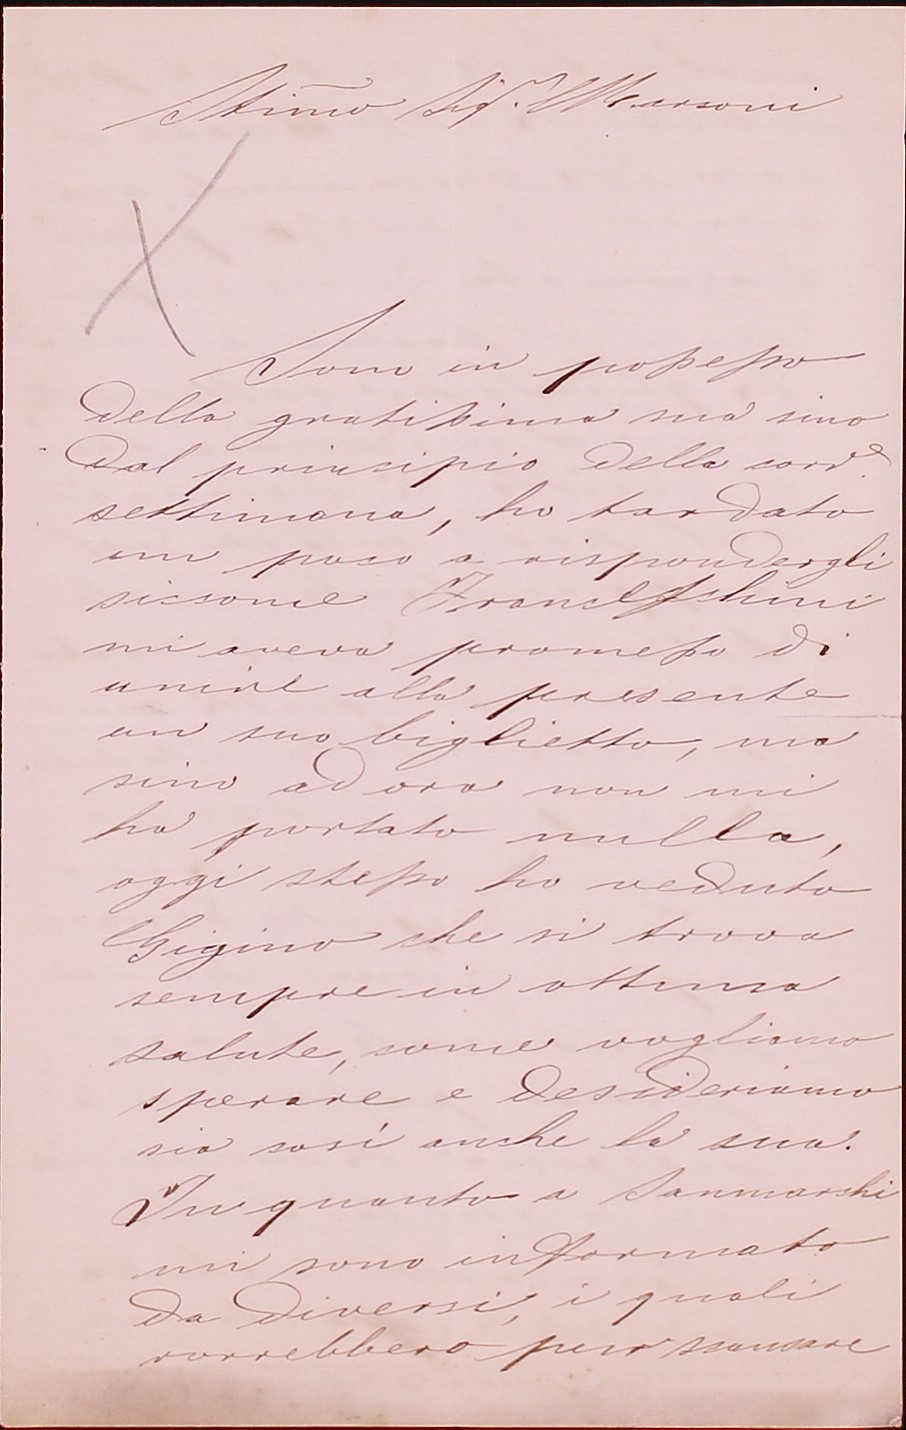 Stim̃o Sig.r Marconi
Sono in possesso
della gratissima sua sino
dal principio della corr.e
settimana, ho tardato
un poco a rispondergli
siccome Franceschini
mi aveva promesso di
unire alla presente
un suo biglietto, ma
sino ad ora non mi
ha portato nulla,
oggi stesso ho veduto
Gigino che si trova
sempre in ottima
salute, come vogliamo
sperare e desideriamo
sia così anche la sua.
In quanto a Sanmarchi
mi sono informato
da diversi, i quali
vorrebbero pur